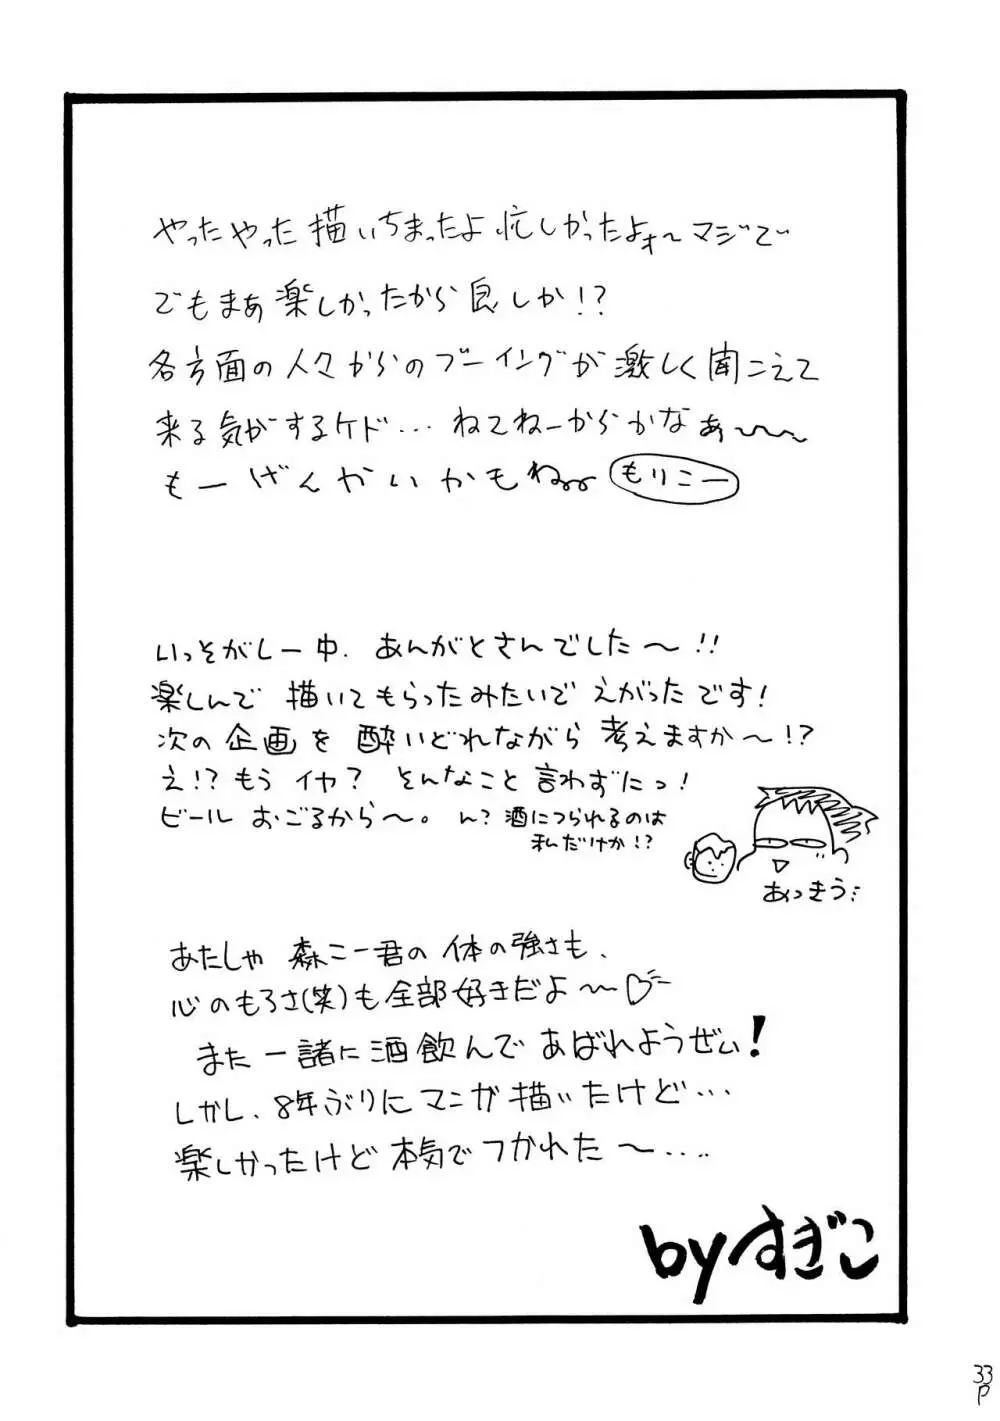 やったやった描いちまったよ忙しかったよォ〜マジで
でもまあ楽しかったから良しか!?
各方面の人々からのブーイングが激しく聞こえて
来る気がするケド… ねてねーからかなぁ〜〜
もーげんかいかもね もりこー
いっそがしー中、あんがとさんでした〜!!
楽しんで 描いてもらったみたいで えがったです!
次の企画を 酔いどれながら 考えますか〜!?
え!?もう イヤ? そんなこと 言わずにっ!
ビール おごるから〜。 ん?酒につられるのは
私だけか!?
あっきう
あたしゃ 森こー君の 体の強さも、
心のもろさ(笑)も全部好きだよ〜♡
また 一諸に 酒飲んで あばれようぜぃ!
しかし、8年ぶりにマンガ描いたけど…
楽しかったけど 本気でつかれた〜‥‥
byすぎこ
33P